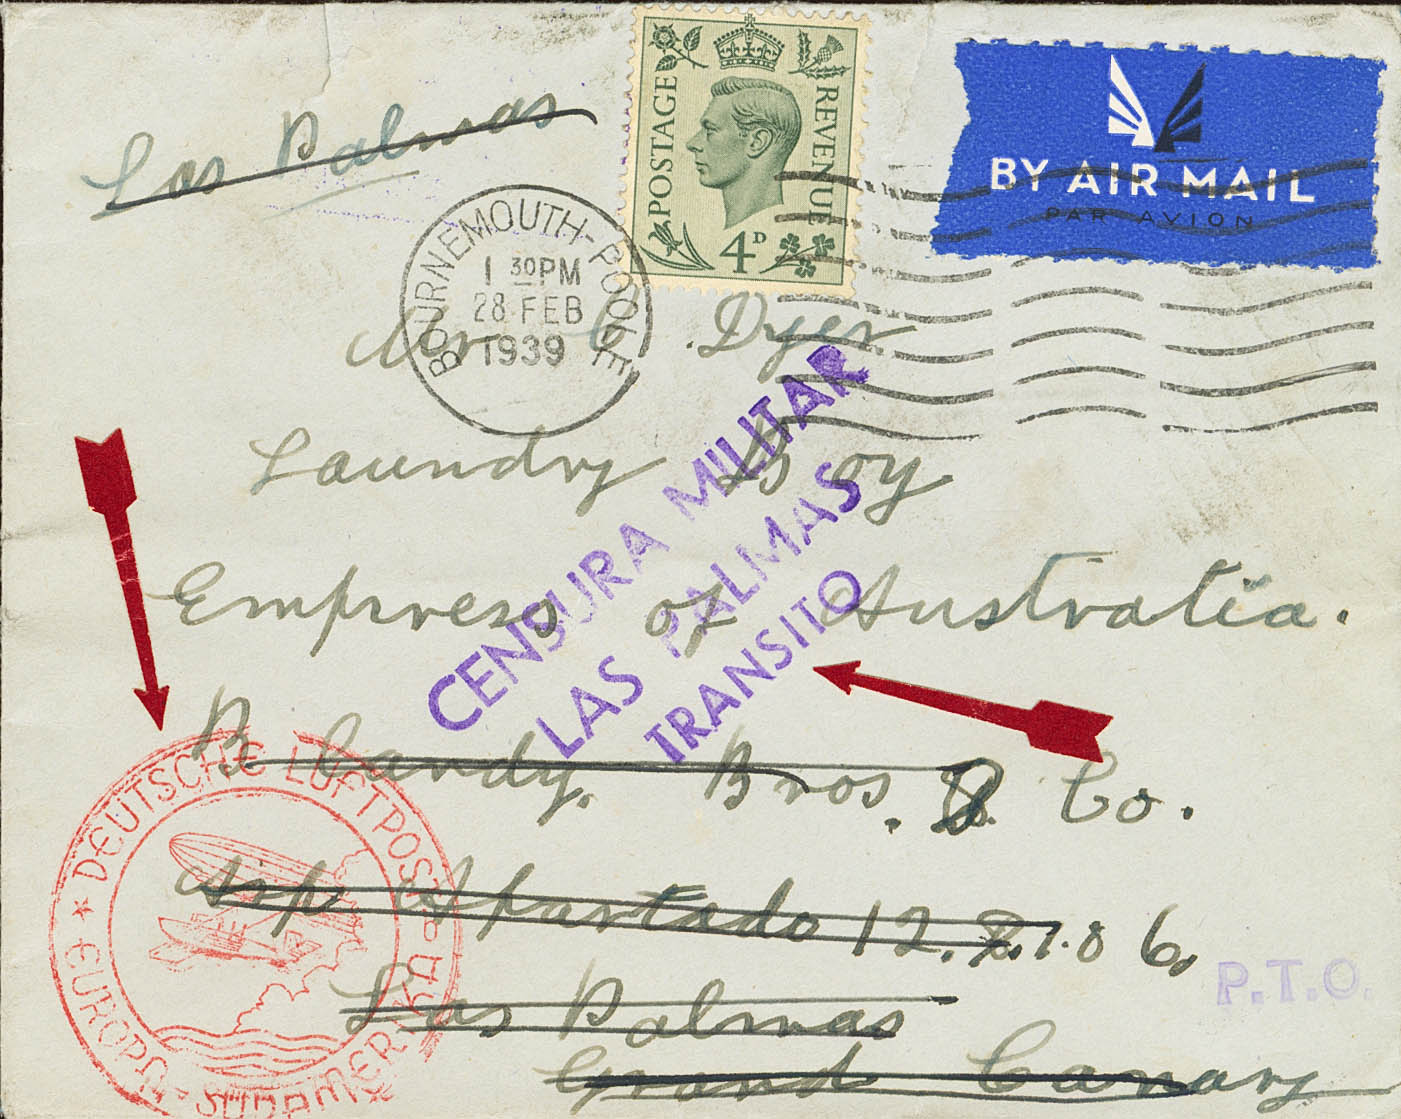 Las Palmas
POSTAGE
REVENUE
4D
BY AIR MAIL
PAR AVION
BOURNEMOUTH-POOLE
1 30PM
28 FEB
1939
Dyer
Laundry Boy
Empress of Australia.
CENSURA MILITAR
LAS PALMAS
TRANSITO
Bros. & Co.
Apartado
Las Palmas
Grand Canary
P.T.O.
DEUTSCHE LUFTPOST
* EUROPA - SÜDAMERIKA